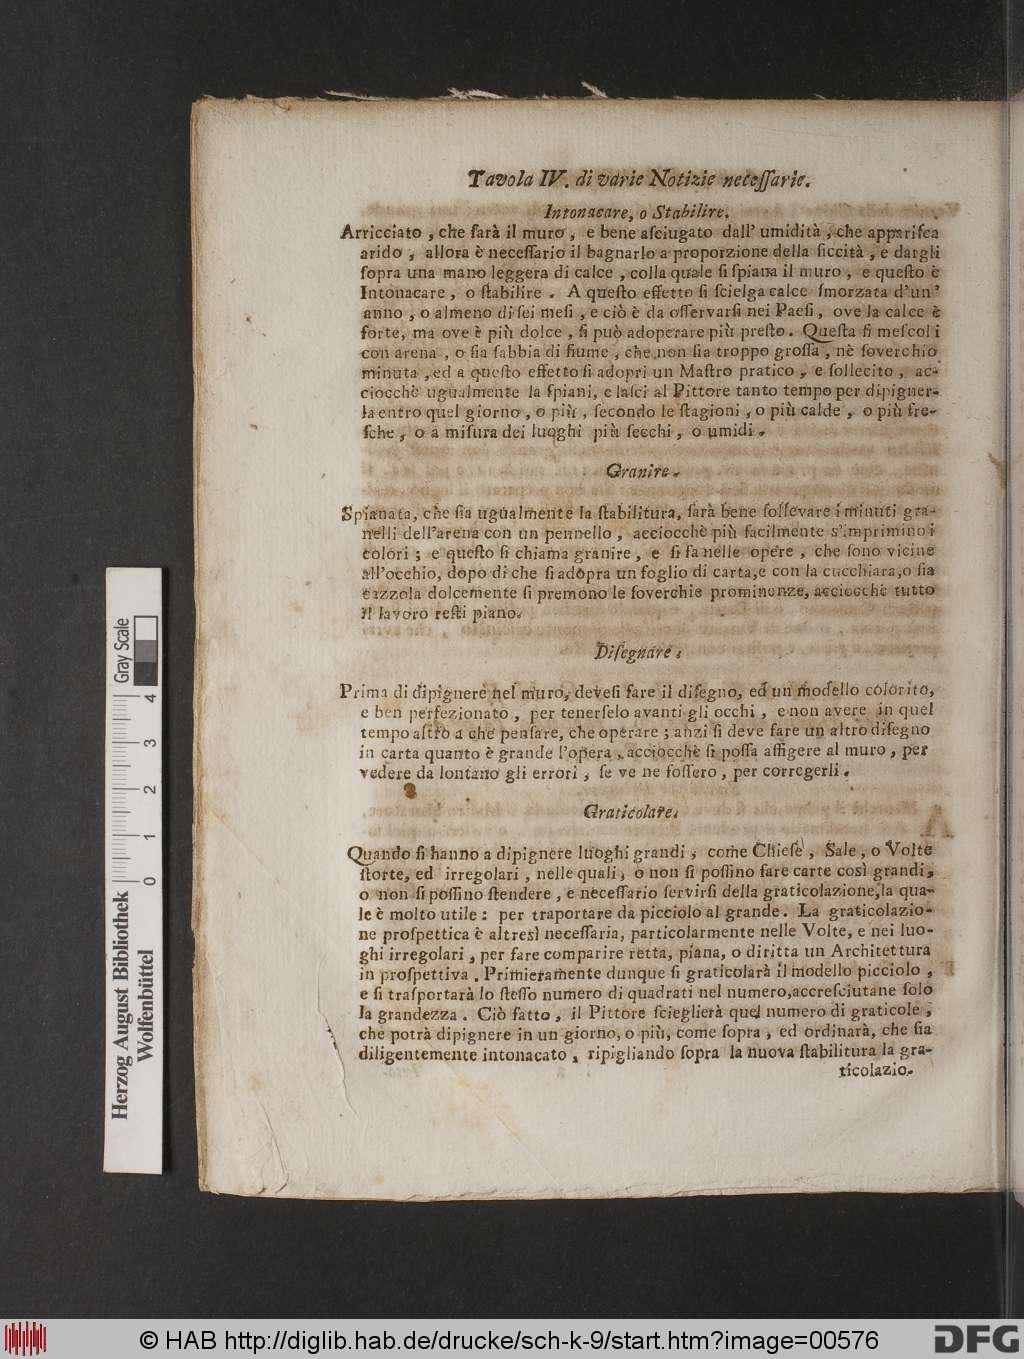 Tavola IV. di varie Notizie neceſſarie.
Intonacare, o Stabilire.
Arricciato, che ſarà il muro, e bene aſciugato dall' umidità, che appariſca
arido, allora è neceſſario il bagnarlo a proporzione della ſiccità, e dargli
ſopra una mano leggera di calce, colla quale ſi ſpiana il muro, e queſto è
Intonacare, o ſtabilire. A queſto effetto ſi ſcielga calce ſmorzata d'un'
anno, o almeno di ſei meſi, e ciò è da oſſervarſi nei Paeſi, ove la calce è
forte, ma ove è più dolce, ſi può adoperare più preſto. Queſta ſi meſcoli
con arena, o ſia ſabbia di fiume, che non ſia troppo groſſa, nè ſoverchio
minuta, ed a queſto effetto ſi adopri un Maſtro pratico, e ſollecito, ac-
ciocchè ugualmente la ſpiani, e laſci al Pittore tanto tempo per dipigner-
la entro quel giorno, o più, ſecondo le ſtagioni, o più calde, o più fre-
ſche, o a miſura dei luoghi più ſecchi, o umidi.
Granire.
Spianata, che ſia ugualmente la ſtabilitura, ſarà bene ſollevare i minuti gra-
nelli dell'arena con un pennello, acciocchè più facilmente s'imprimino i
colori; e queſto ſi chiama granire, e ſi fa nelle opere, che ſono vicine
all'occhio, dopo di che ſi adopra un foglio di carta, e con la cucchiara, o ſia
cazzola dolcemente ſi premono le ſoverchie prominenze, acciocchè tutto
il lavoro reſti piano.
Diſegnare.
Prima di dipignere nel muro, deveſi fare il diſegno, ed un modello colorito,
e ben perfezionato, per tenerſelo avanti gli occhi, e non avere in quel
tempo aſtro a che penſare, che operare; anzi ſi deve fare un altro diſegno
in carta quanto è grande l'opera, acciocchè ſi poſſa affigere al muro, per
vedere da lontano gli errori, ſe ve ne foſſero, per corregerli.
Graticolare.
Quando ſi hanno a dipignere luoghi grandi, come Chieſe, Sale, o Volte
ſtorte, ed irregolari, nelle quali, o non ſi poſſino fare carte così grandi,
o non ſi poſſino ſtendere, e neceſſario ſervirſi della graticolazione, la qua-
le è molto utile: per traportare da picciolo al grande. La graticolazio-
ne proſpettica è altresì neceſſaria, particolarmente nelle Volte, e nei luo-
ghi irregolari, per fare comparire retta, piana, o diritta un Architettura
in proſpettiva. Primieramente dunque ſi graticolarà il modello picciolo,
e ſi traſportarà lo ſteſſo numero di quadrati nel numero, accreſciutane ſolo
la grandezza. Ciò fatto, il Pittore ſcieglierà quel numero di graticole,
che potrà dipignere in un giorno, o più, come ſopra, ed ordinarà, che ſia
diligentemente intonacato, ripigliando ſopra la nuova ſtabilitura la gra-
ticolazio-
Gray Scale
0 1 2 3 4
Herzog August Bibliothek
Wolfenbüttel
© HAB http://diglib.hab.de/drucke/sch-k-9/start.htm?image=00576
DFG